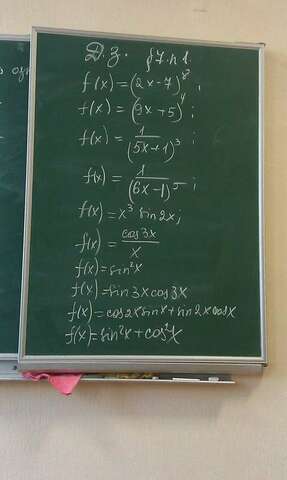 Д.З. §7.п1.
f(x)=(2x-7)⁸;
f(x)=(9x+5)⁴;
f(x)=1/(5x+1)³;
f(x)=1/(6x-1)⁵;
f(x)=x³ sin2x;
f(x)=cos3x/x
f(x)=sin²x
f(x)=sin3xcos3x
f(x)=cos2xsinx+sin2xcosx
f(x)=sin²x+cos²x